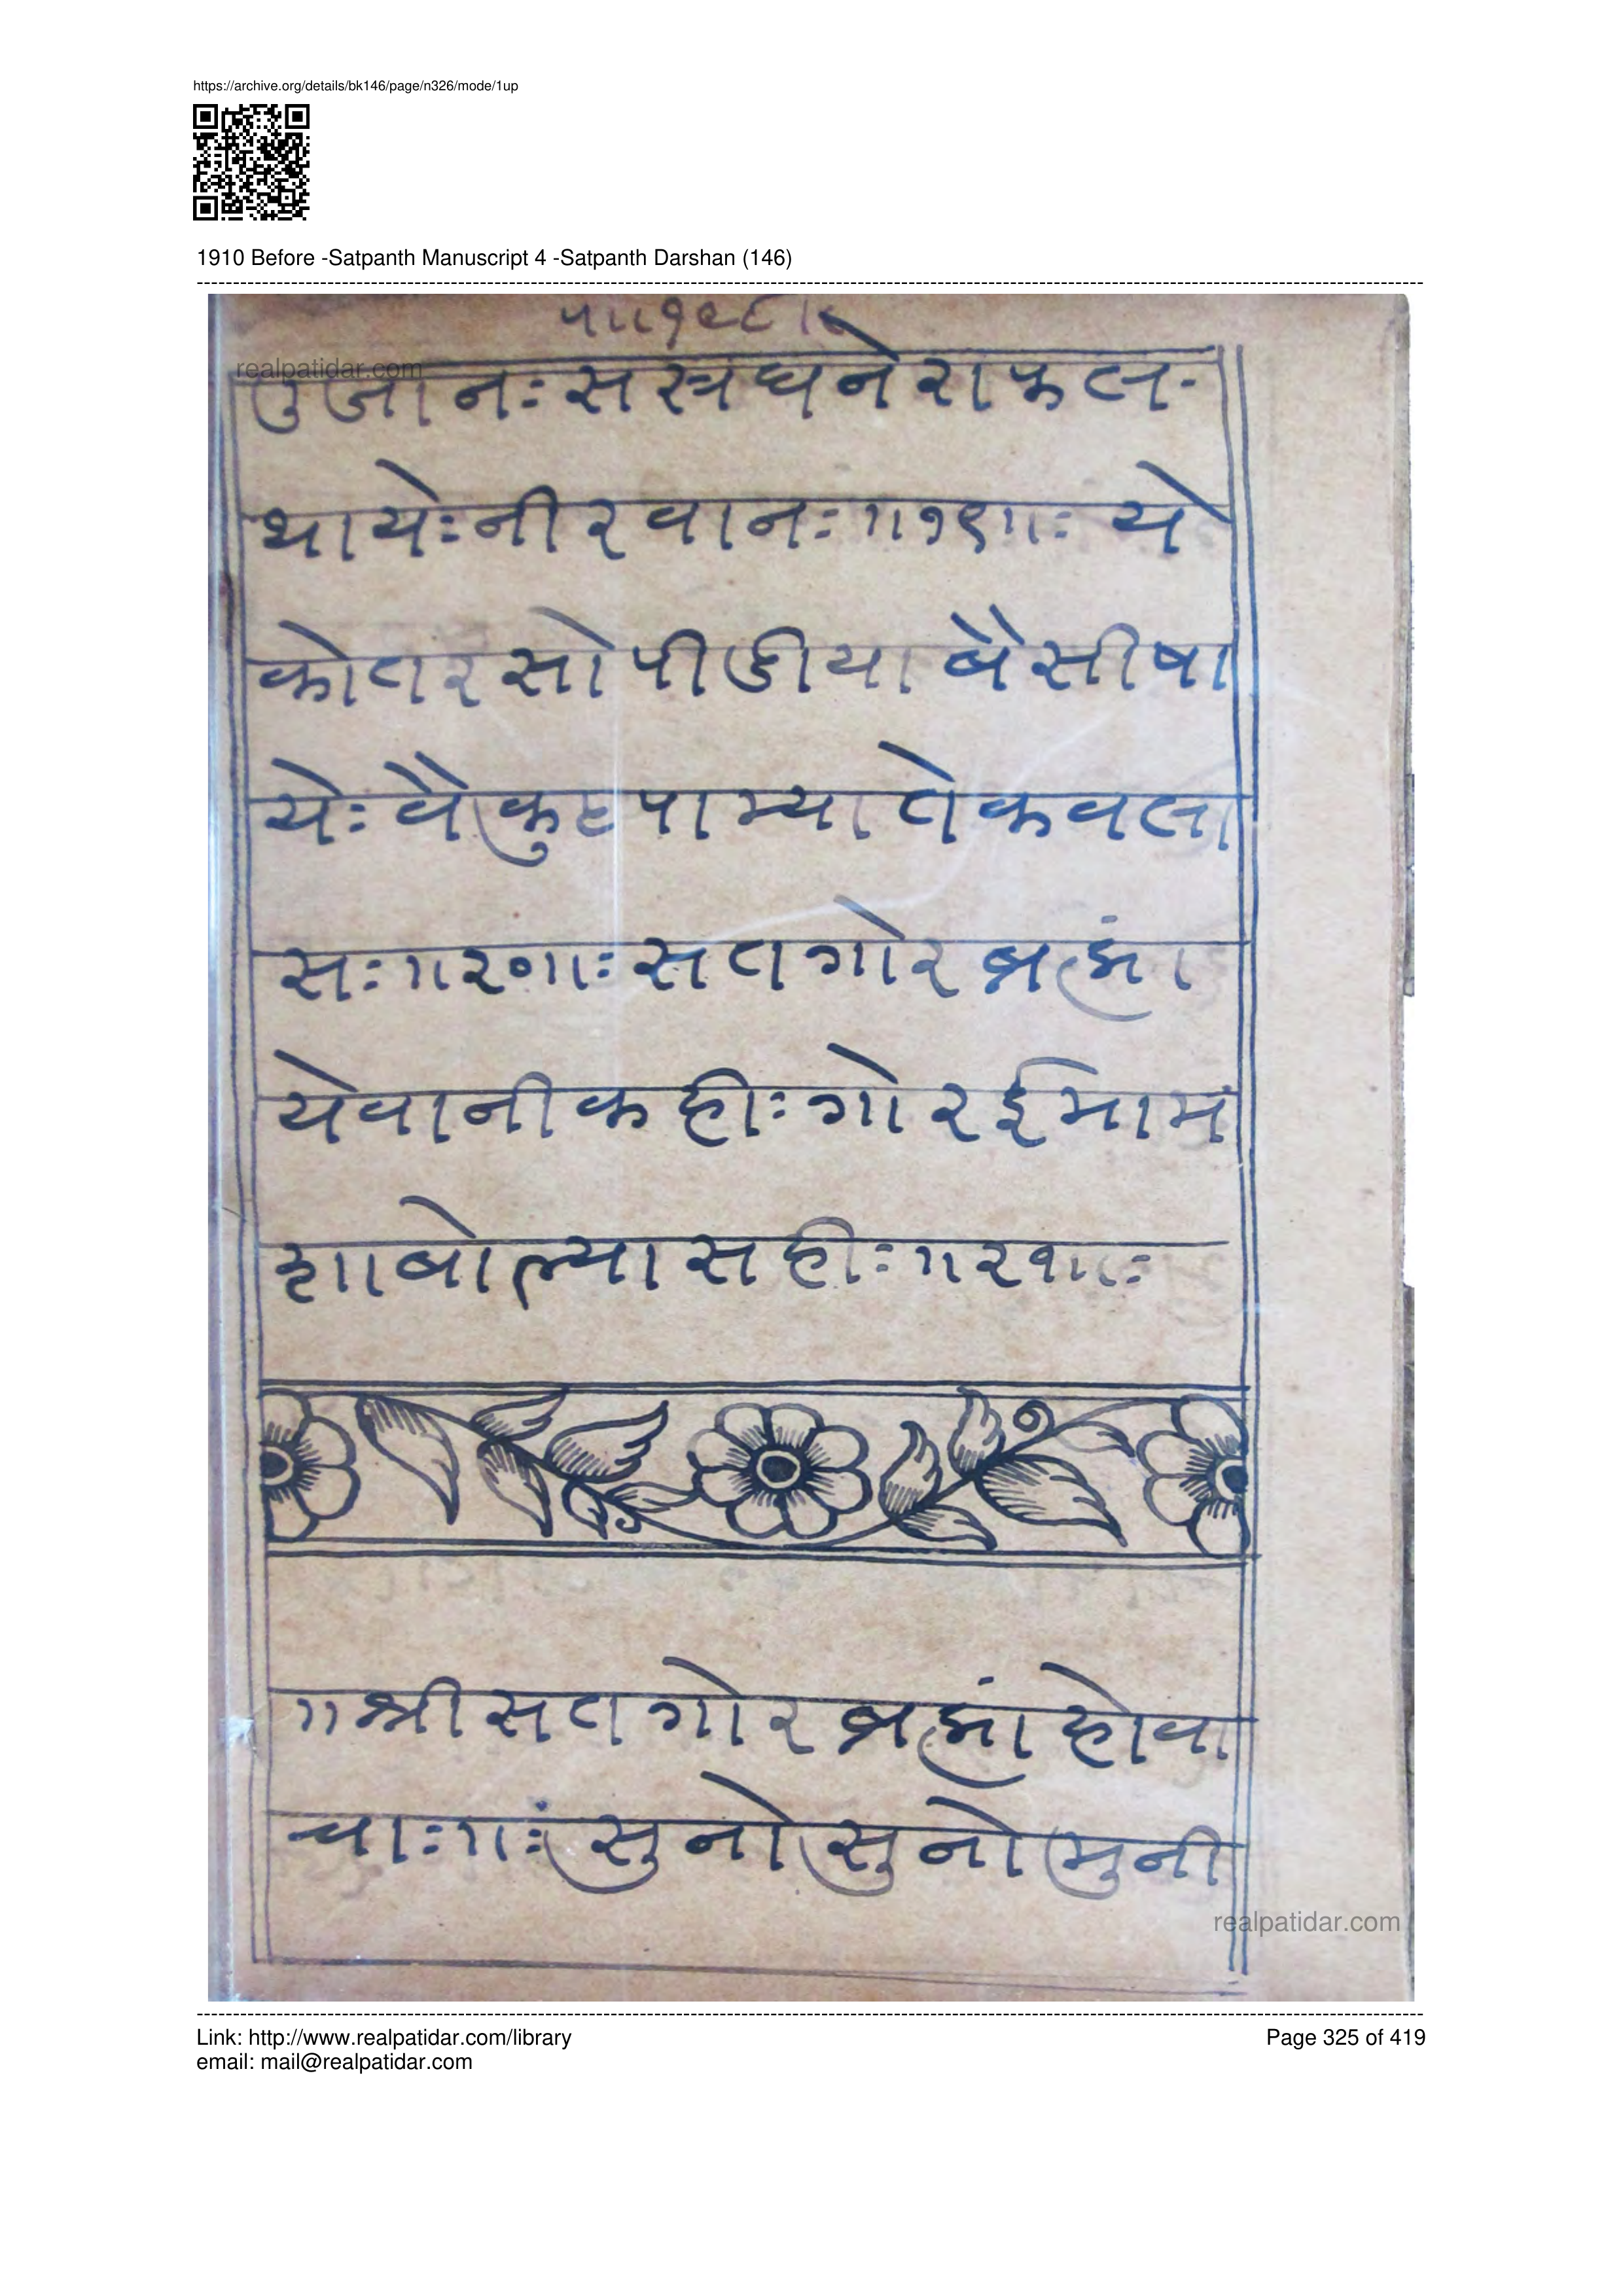 https://archive.org/details/bk146/page/n326/mode/1up
1910 Before -Satpanth Manuscript 4 -Satpanth Darshan (146)
realpatidar.com
तुजानः स स्त्र घ ने रा फ ल-
थायेः नीरवानः ॥१९॥ः ये
कोतर सो पीडीया बैसी षा
येः वैकुंट पाम्या ते कवला
सः ॥२०॥ः सतगोर ब्रह्मां
येवानी कहीः गोर ईमाम
शा बोल्या सहीः ॥२१॥ः
॥ श्री सतगोर ब्रह्मां होवा
चाः ॥ः सुनो सुनो मुनी
realpatidar.com
Link: http://www.realpatidar.com/library
Page 325 of 419
email: mail@realpatidar.com